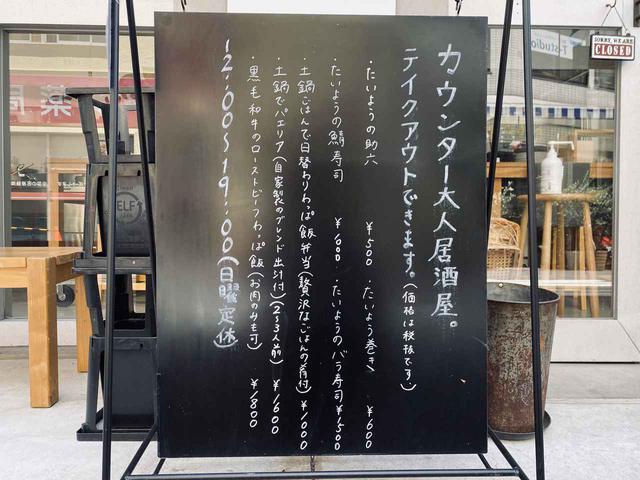 カウンター大人居酒屋。
テイクアウトできます。(価格は税抜です)
・たいようの助六 ¥500 ・たいよう巻き ¥600
・たいようの鯖寿司 ¥1000 ・たいようのバラ寿司 ¥1,500
・土鍋ごはんで日替わりわっぱ飯弁当(贅沢なごはんの首付) ¥1000
・土鍋でパエリア(自家製のブレンド出汁付)(2~3人前) ¥1600
・黒毛和牛のローストビーフわっぱ飯(お肉のみも可) ¥1800
12:00~19:00(日曜定休)
SORRY, WE ARE
CLOSED
studio
SELF